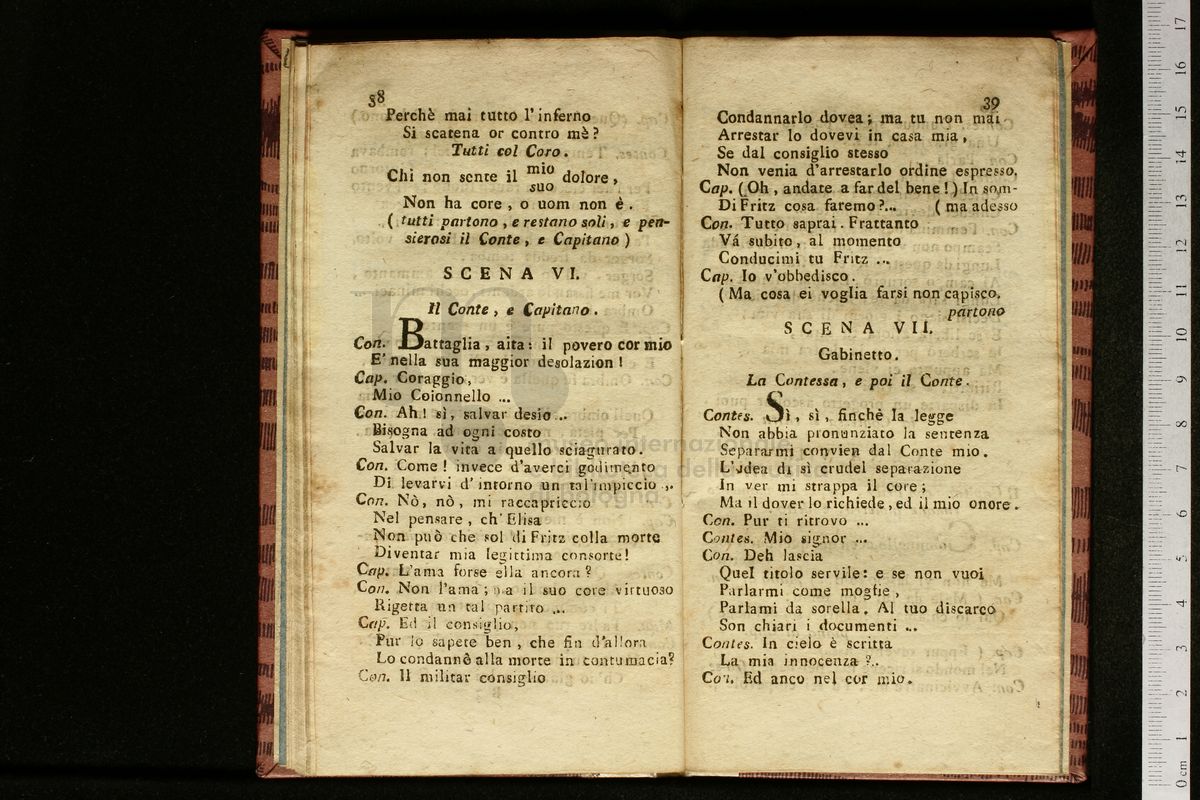 38
Perchè mai tutto l'inferno
Si scatena or contro mè?
Tutti col Coro.
Chi non sente il mio suo dolore,
Non ha core, o uom non è.
( tutti partono, e restano soli, e pen-
sierosi il Conte, e Capitano )
SCENA VI.
Il Conte, e Capitano.
Con. Battaglia, aita: il povero cor mio
E' nella sua maggior desolazion!
Cap. Coraggio,
Mio Coionnello ...
Con. Ah! sì, salvar desio ...
Bisogna ad ogni costo
Salvar la vita a quello sciagurato.
Con. Come! invece d'averci godimento
Di levarvi d'intorno un tal'impiccio ..
Con. Nò, nò, mi raccapriccio
Nel pensare, ch'Elisa
Non può che sol di Fritz colla morte
Diventar mia legittima consorte!
Cap. L'ama forse ella ancora?
Con. Non l'ama; ma il suo core virtuoso
Rigetta un tal partito ...
Cap. Ed il consiglio,
Pur lo sapete ben, che fin d'allora
Lo condannò alla morte in contumacia?
Con. Il militar consiglio
39
Condannarlo dovea; ma tu non mai
Arrestar lo dovevi in casa mia,
Se dal consiglio stesso
Non venia d'arrestarlo ordine espresso.
Cap. (Oh, andate a far del bene!) In som-
Di Fritz cosa faremo?... ( ma adesso
Con. Tutto saprai. Frattanto
Vá subito, al momento
Conducimi tu Fritz ...
Cap. Io v'obbedisco.
( Ma cosa ei voglia farsi non capisco.
partono
SCENA VII.
Gabinetto.
La Contessa, e poi il Conte.
Contes. Sì, sì, finchè la legge
Non abbia pronunziato la sentenza
Separarmi convien dal Conte mio.
L'idea di sì crudel separazione
In ver mi strappa il core;
Ma il dover lo richiede, ed il mio onore.
Con. Pur ti ritrovo ...
Contes. Mio signor ...
Con. Deh lascia
Quel titolo servile: e se non vuoi
Parlarmi come moglie,
Parlami da sorella. Al tuo discarco
Son chiari i documenti ...
Contes. In cielo è scritta
La mia innocenza ?..
Con. Ed anco nel cor mio.
museo internazionale
della
bologna
0 cm 1 2 3 4 5 6 7 8 9 10 11 12 13 14 15 16 17